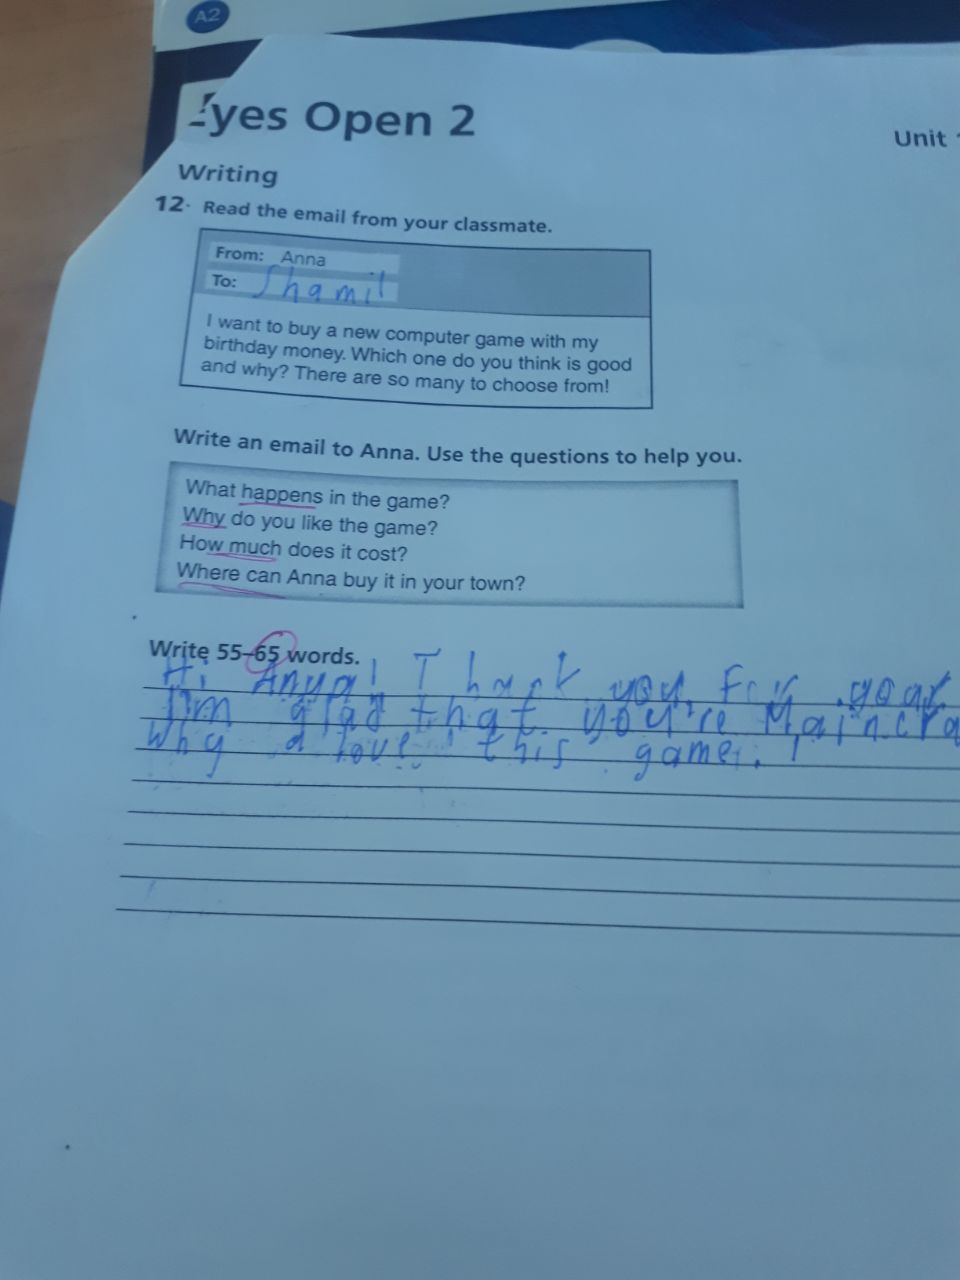 A2
Eyes Open 2
Unit
Writing
12. Read the email from your classmate.
From: Anna
To: Shamil
I want to buy a new computer game with my
birthday money. Which one do you think is good
and why? There are so many to choose from!
Write an email to Anna. Use the questions to help you.
What happens in the game?
Why do you like the game?
How much does it cost?
Where can Anna buy it in your town?
Write 55–65 words.
Hi Anya! Thank you. For your
I'm glad that you're Maincra
Why a love this game.